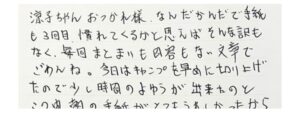 涼子ちゃん おつかれ様、なんだかんだで手紙
も3回目 慣れてくるかと思えばそんな訳も
なく、毎回まとまりも内容もない文章で
ごめんね。今日はキャンプを早めに切り上げ
たので少し時間のよゆうが出来たのと
の手紙がとてもうれしかったから